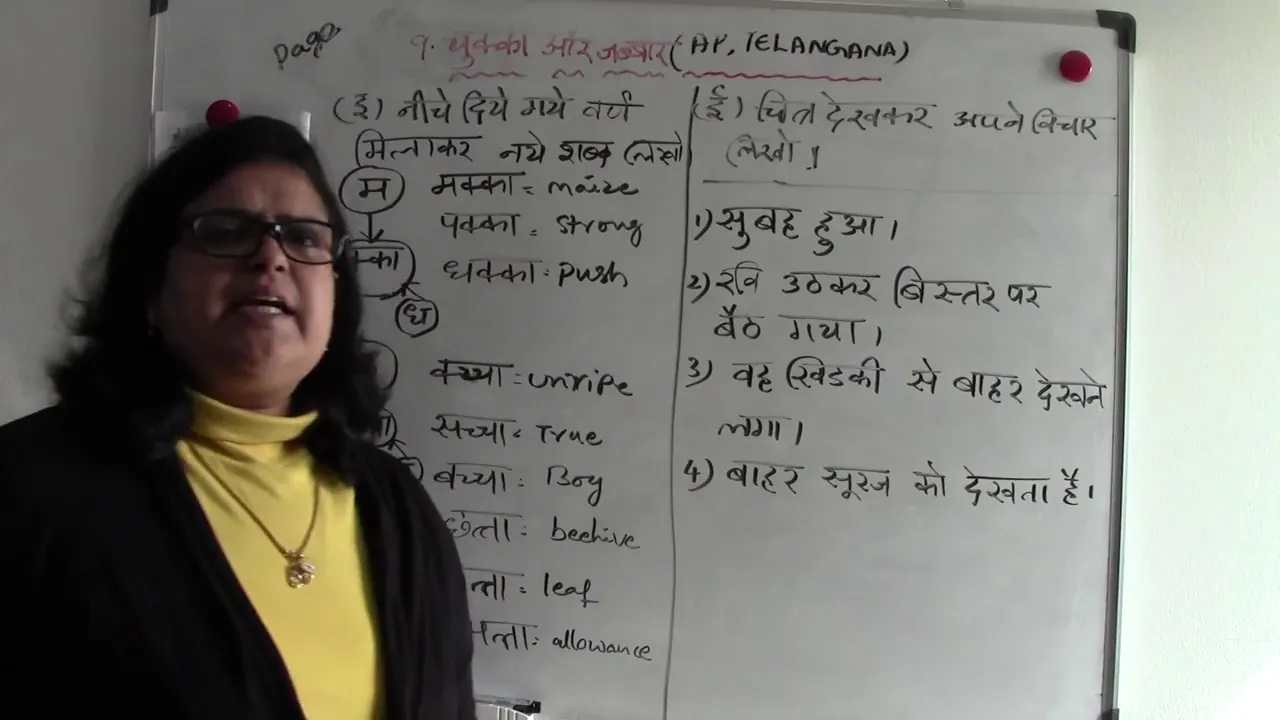 page
9. चुक्का और जब्बार (AP, TELANGANA)
(इ) नीचे दिये गये वर्ण
मिलाकर नये शब्द लिखो
म
मक्का = maize
पक्का = strong
क्का
धक्का = Push
ध
कच्चा = unripe
सच्चा = True
बच्चा = Boy
छत्ता = beehive
त्ता = leaf
भत्ता = allowance
(ई) चित्र देखकर अपने विचार
लिखो।
1) सुबह हुआ।
2) रवि उठकर बिस्तर पर
बैठ गया।
3) वह खिडकी से बाहर देखने
लगा।
4) बाहर सूरज को देखता है।